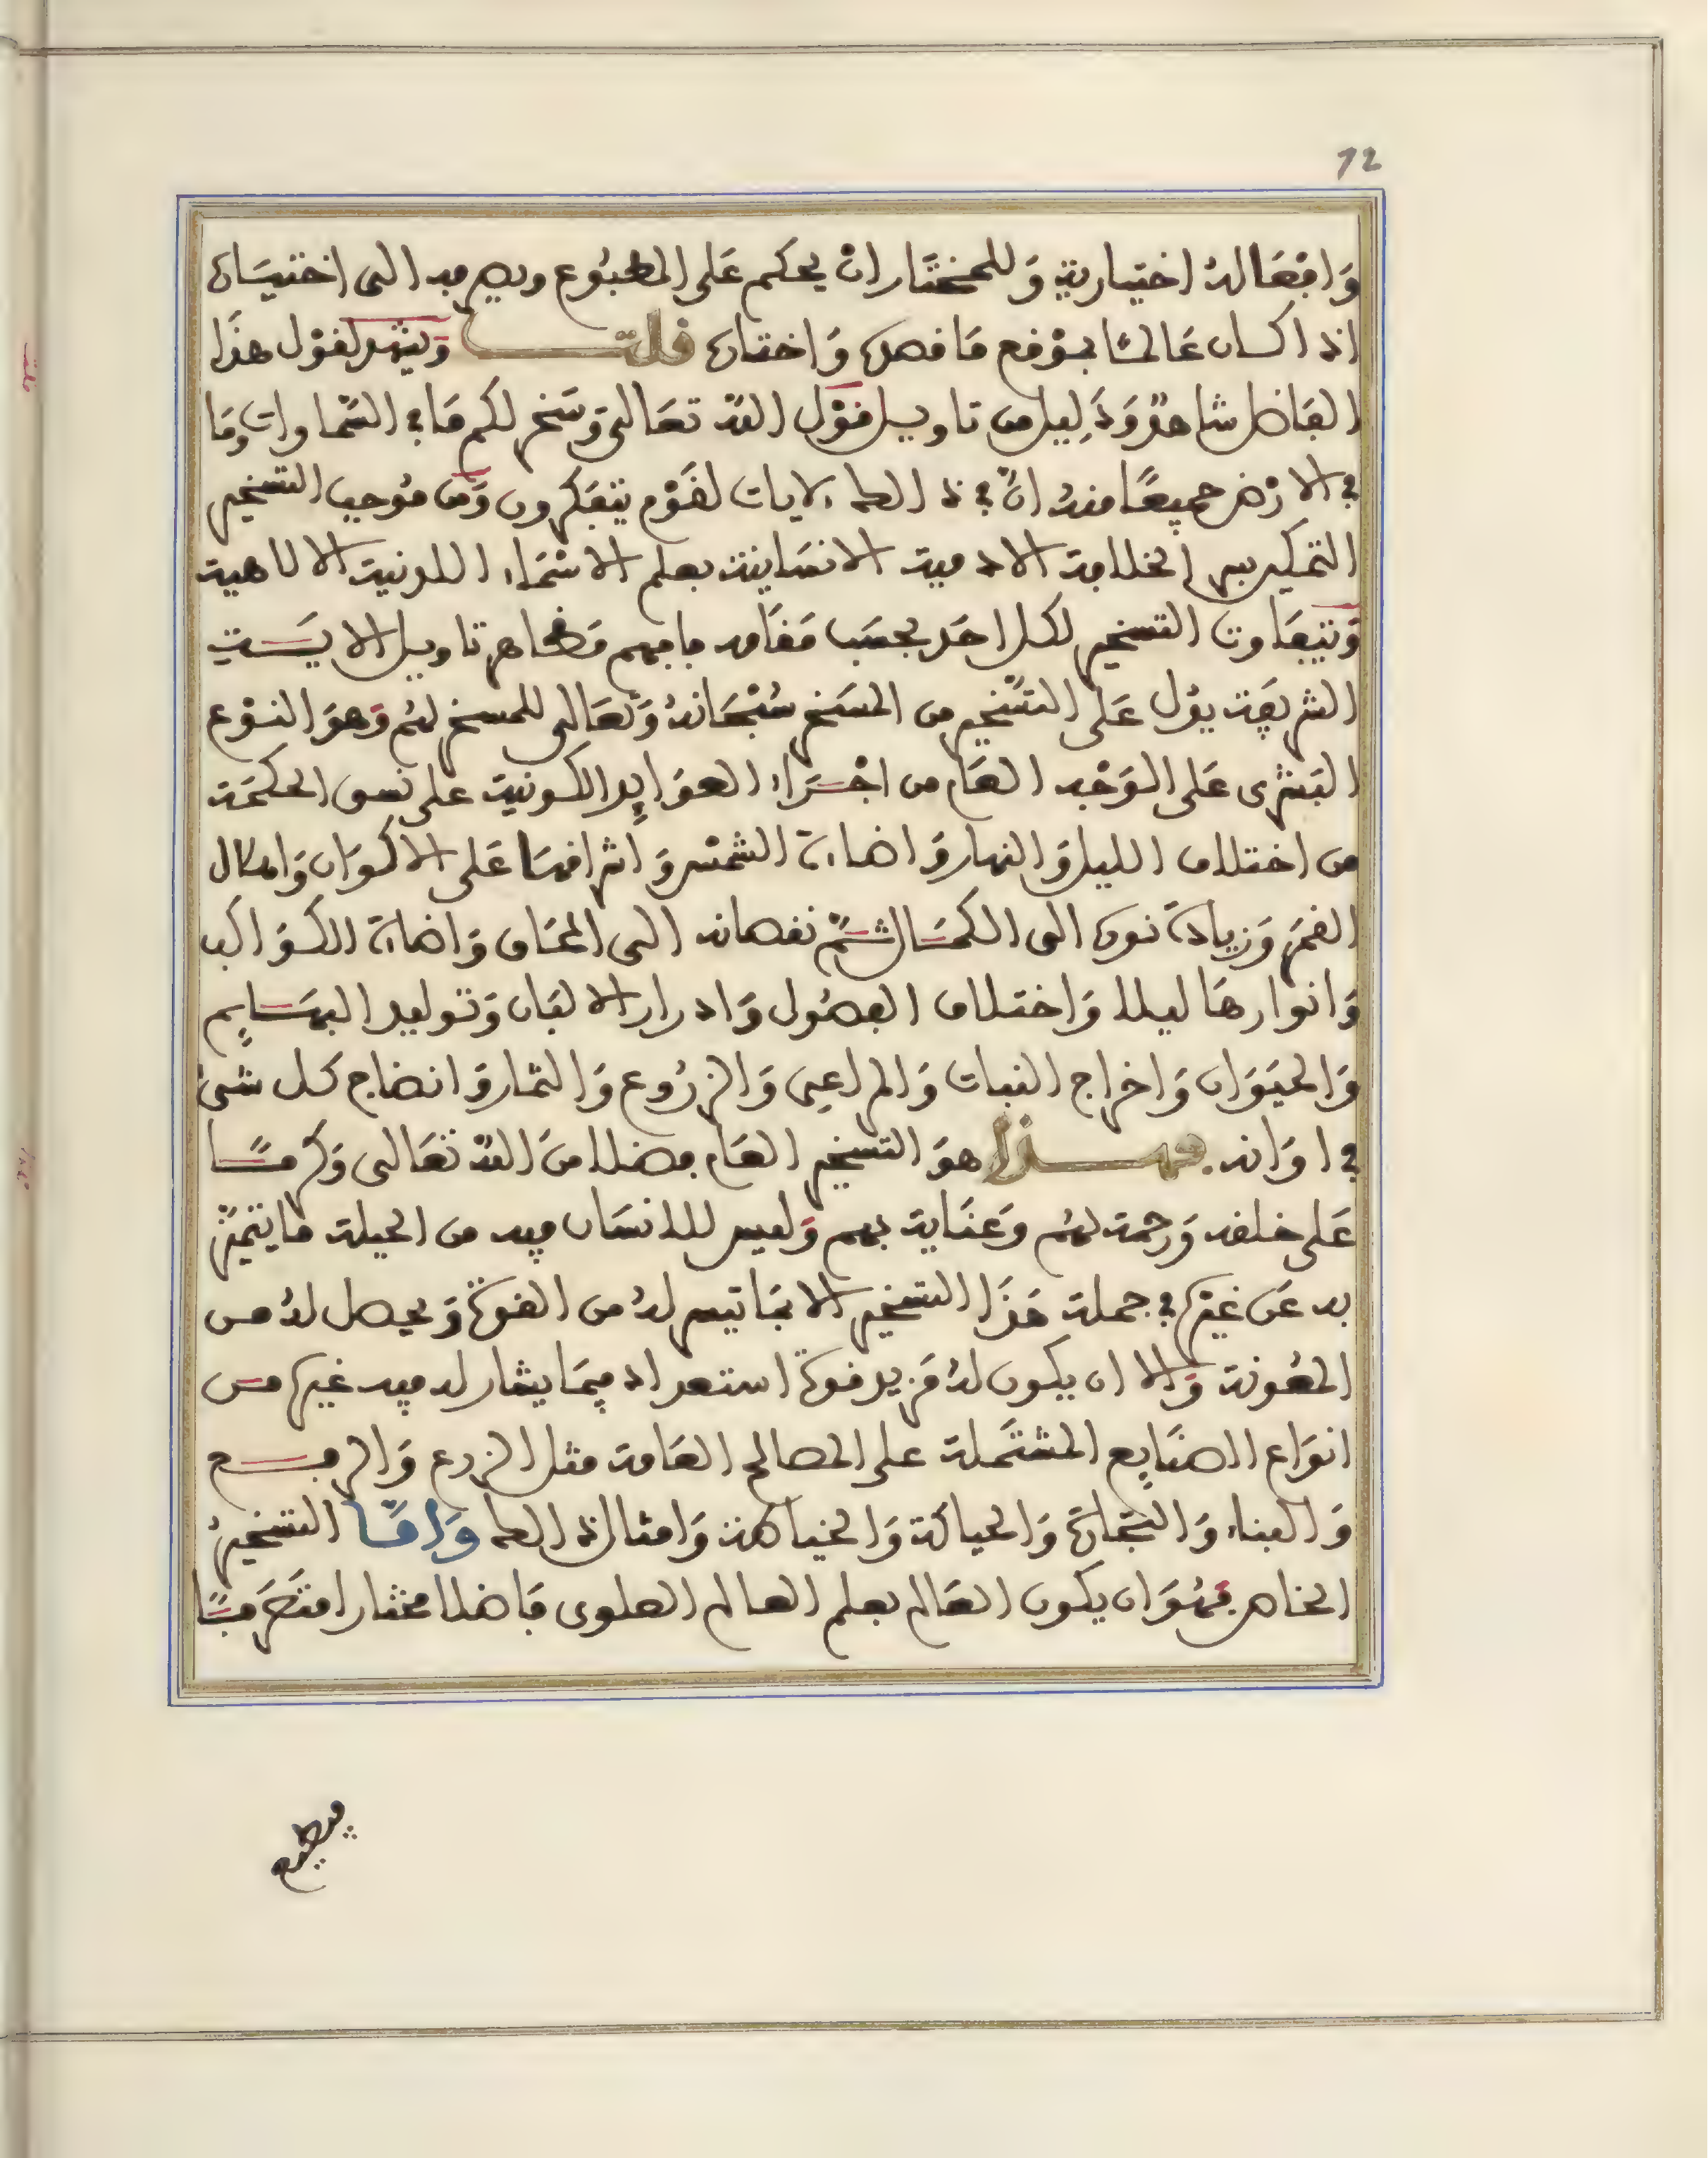 72
وَافعَاله اختياريةٍ وَللمختَار انْ يحكم عَلى المطبُوع ويصرفه الى اختيَاره
اذا كان عَالمًا بموْقع مَا قصده وَاختاره قلت وَيشهد لقوْل هذَا
الفَاضل شاهدٌ وَدَلِيل من تاويل قوْل اللهّ تعَالى وَسَخر لكم مَا في السَّماوات وَمَا
في الارْض جميعًا منهُ انّ في ذالك لايات لقَوْم يتفكرون وَمن مُوجب التسخير
التمكين بسر الخلافة الادمية الانسَانية بعلم الاسْمَاء اللدنية الالاهية
وَيتفَاوت التسخير لكل احَد بحسَب مَقَامه فافهم فظاهر تاويل الايَــة
الشريفة يدُل عَلى التسْخير من المسَخر سُبْحَانهُ وَتعَالى للمسخر لهُم وَهوَ النوْع
البَشرى عَلى الوَجْه العَام من اجْرَاء العوَايِد الكونية على نسق الحكمَة
من اختلاف الليل وَالنهار وَاضاءة الشمسْ وَاشراقهَا عَلى الاكوَان وَاهلال
القمَر وَزيادَة نوره الى الكمَال ثُمّ نقصانه الى المحَاق وَاضاءة الكوَاكب
وَانوارهَا ليلا وَاختلاف الفصُول وَادرار الالبَان وَتوليد البهَايِم
وَالحيَوَان وَاخراج النبات وَالمراعِى وَالزرُوع وَالثمار وَانضاج كل شىء
في اوَانه فهـذا هوَ التسخير العَام فضلا منَ اللهّ تعَالى وَكرمًـا
عَلى خلقه وَرحمة لهُم وَعنَاية بهم وَليس للانسَان فيه من الحيلة ما يتميَّز
به عَن غيْره في جملة هَذَا التسْخير الا بمَا تيسر لهُ من القوةَ وَيحصل لهُ من
المعُونة وَالا ان يكون لهُ مَزيد قوةَ استعداد فيمَا يشار له فيه غيره من
انوَاع الصنَايِع المشتَملة على المصالح العَامة مثل الزرع وَالرفـع
وَالبناء وَالتجَارَة وَالحياكة وَالخياطة وَامثال ذالك وَامّـا التسْخيرُ
الخاص فهُوَ ان يكون العَالم بعلم العالم العلوى فَاضلا مختارا متَصَرفـا